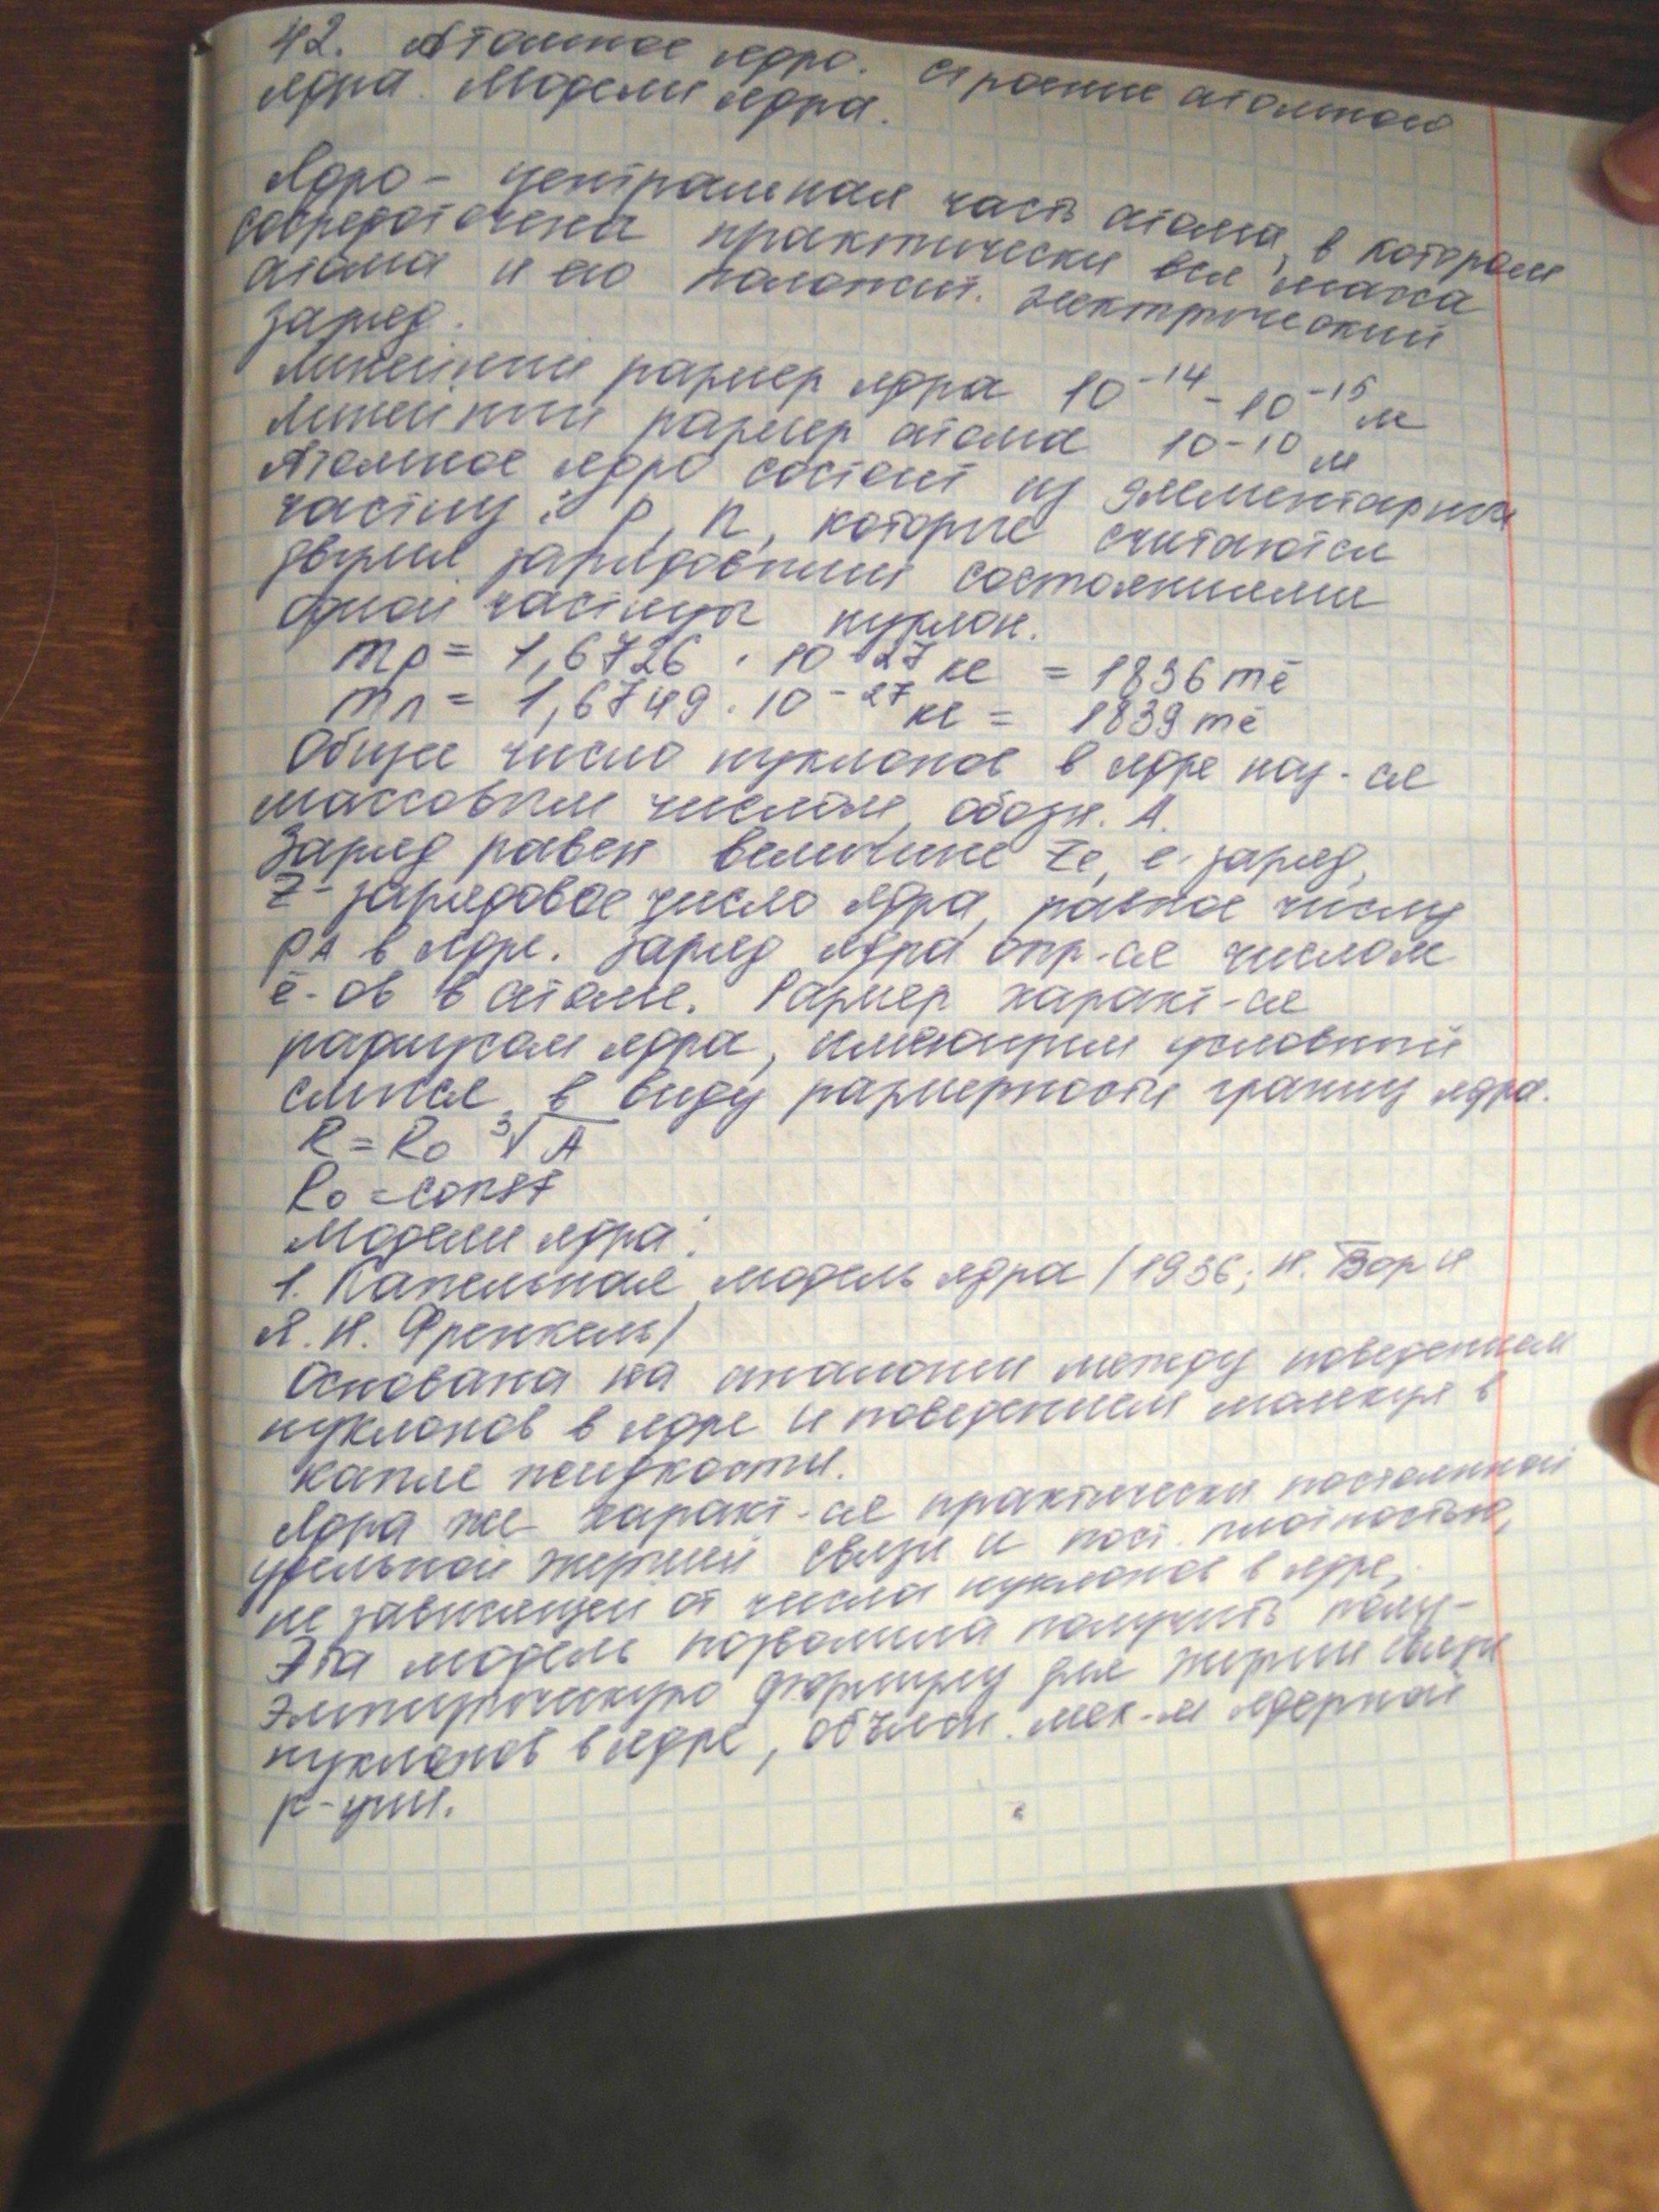 42. Атомное ядро. Строение атомного
ядра. Модели ядра.
Ядро - центральная часть атома, в котором
сосредоточена практически вся масса
атома и его положит. электрический
заряд.
Линейный размер ядра 10⁻¹⁴ - 10⁻¹⁵ м
Линейный размер атома 10⁻¹⁰ м
Атомное ядро состоит из элементарных
частиц: p, n, которые считаются
двумя зарядовыми состояниями
одной частицы нуклон.
mp = 1,6726 · 10⁻²⁷ кг = 1836 mē
mn = 1,6749 · 10⁻²⁷ кг = 1839 mē
Общее число нуклонов в ядре наз-ся
массовым числом, обозн. А.
Заряд равен величине Ze, e - заряд,
Z - зарядовое число ядра, равное числу
в ядре. Заряд ядра опр-ся числом
ē-ов в атоме. Размер характ-ся
радиусом ядра, имеющим условный
смысл в виду размерности границ ядра.
R = R₀ ∛A
R₀ = const
Модели ядра:
1. Капельная модель ядра /1936; Н. Бор и
Я. И. Френкель/
Основана на аналогии между поведением
нуклонов в ядре и поведением молекул в
капле жидкости.
Ядра же характ-ся практически постоянной
удельной энергией связи и пост. плотностью,
не зависящей от числа нуклонов в ядре.
Эта модель позволила получить полу-
эмпирическую формулу для энергии связи
нуклонов в ядре, объясн. мех-м ядерной
р-ции.